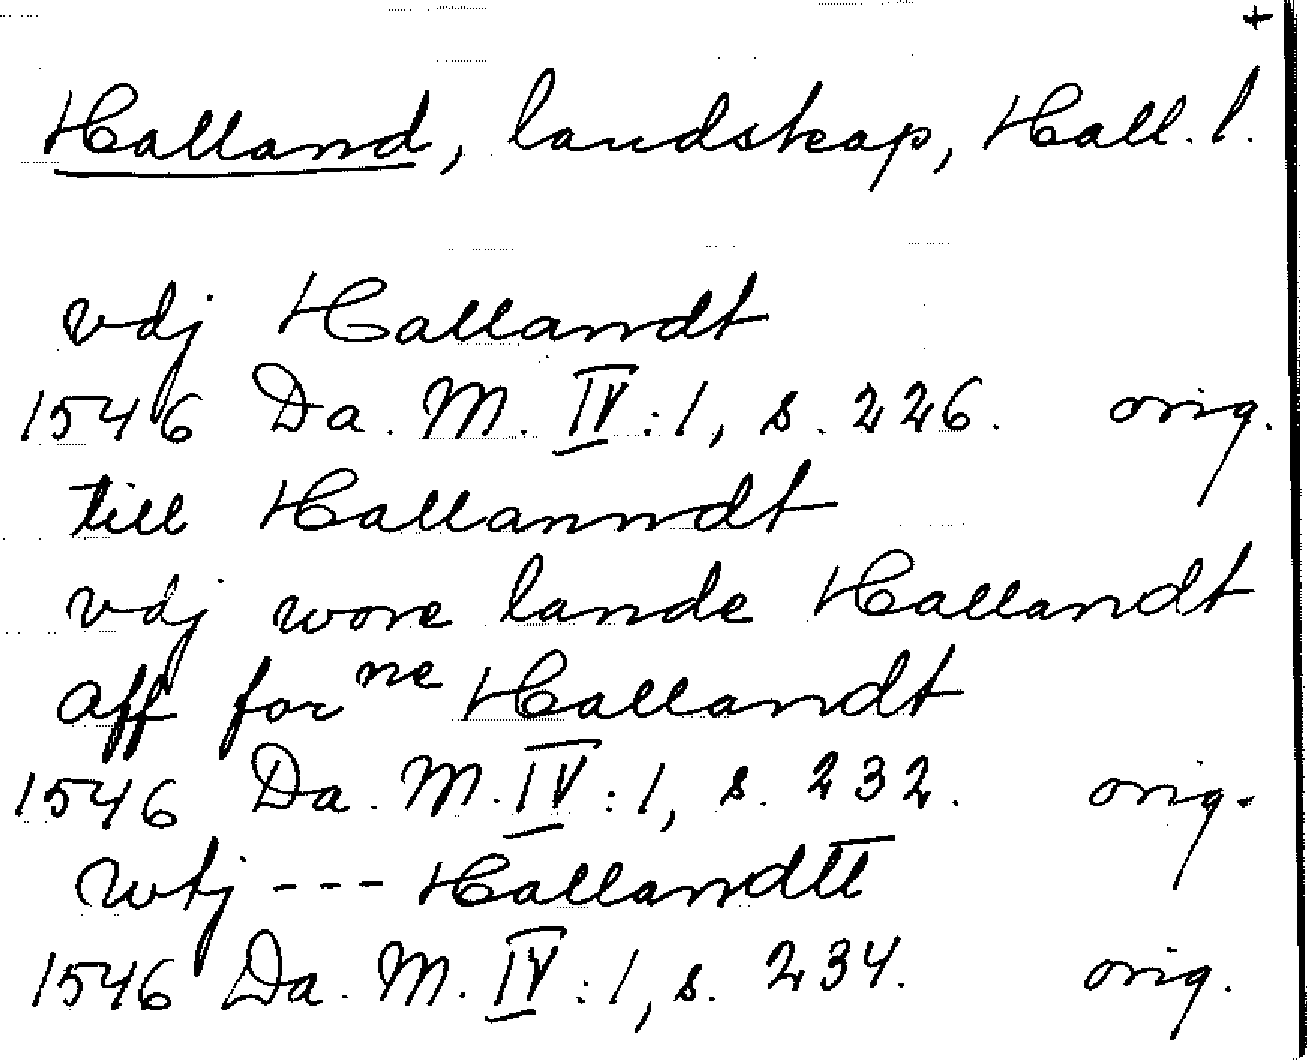 +
Halland, landskap, Hall. l.
vdj Hallandt
1546 Da. M. IV:1, s. 226. orig.
till Hallanndt
vdj wore lande Hallandt
aff forne Hallandt
1546 Da. M. IV:1, s. 232. orig.
wtj --- Hallandtt
1546 Da. M. IV:1, s. 234. orig.